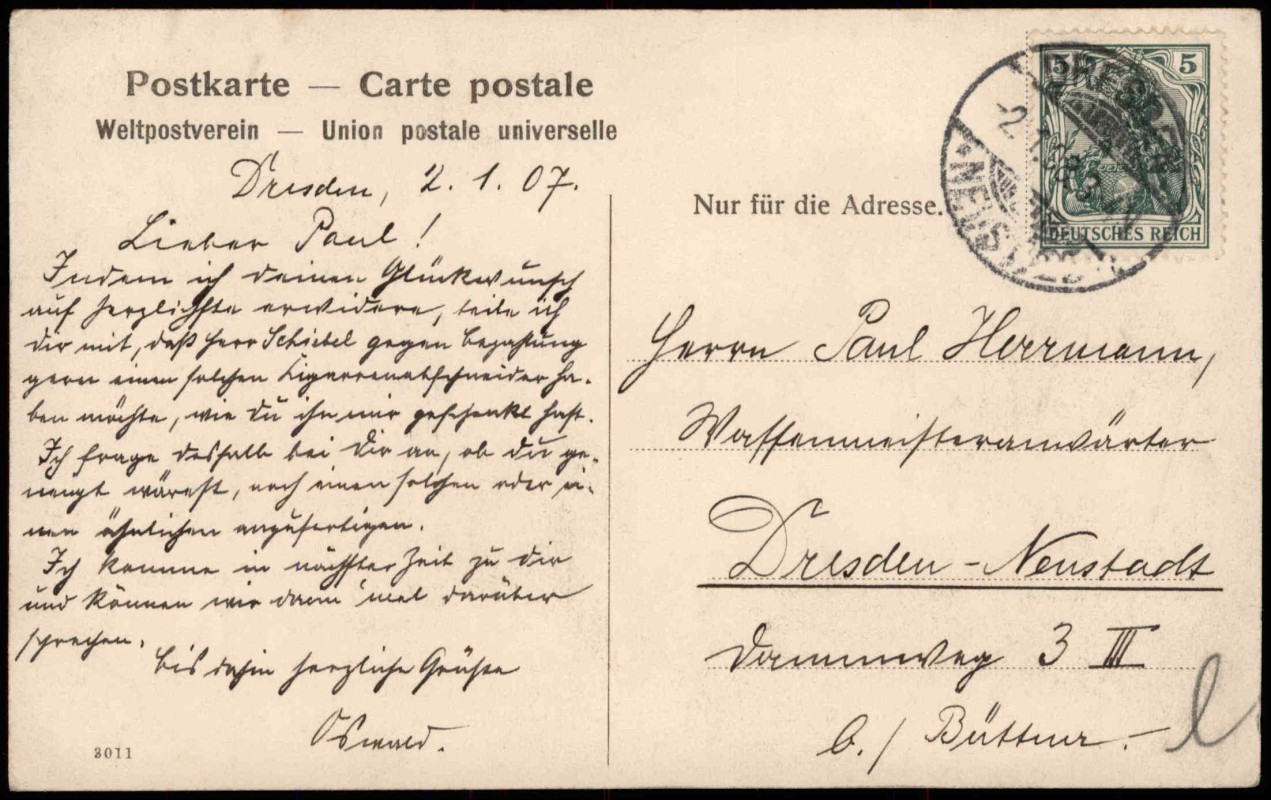 Postkarte — Carte postale
Weltpostverein — Union postale universelle
Dresden, 2. 1. 07.
Lieber Paul!
Indem ich deinen Glückwunsch
auf herzlichste erwidere, teile ich
dir mit, daß Herr Schiebel gegen Bezahlung
gern einen solchen Zigarrenabschneider ha-
ben möchte, wie du ihn mir geschenkt hast.
Ich frage deshalb bei dir an, ob du ge-
neigt wärest, noch einen solchen oder ei-
nen ähnlichen anzufertigen.
Ich komme in nächster Zeit zu dir
und können wir dann 'mal darüber
sprechen.
Bis dahin herzliche Grüße
Oswald.
3011
Nur für die Adresse.
5 5
DEUTSCHES REICH
DRESDEN
NEUSTADT
Herrn Paul Herrmann,
Waffenmeisteranwärter
Dresden-Neustadt
Dammweg 3 III
b./ Büttner.